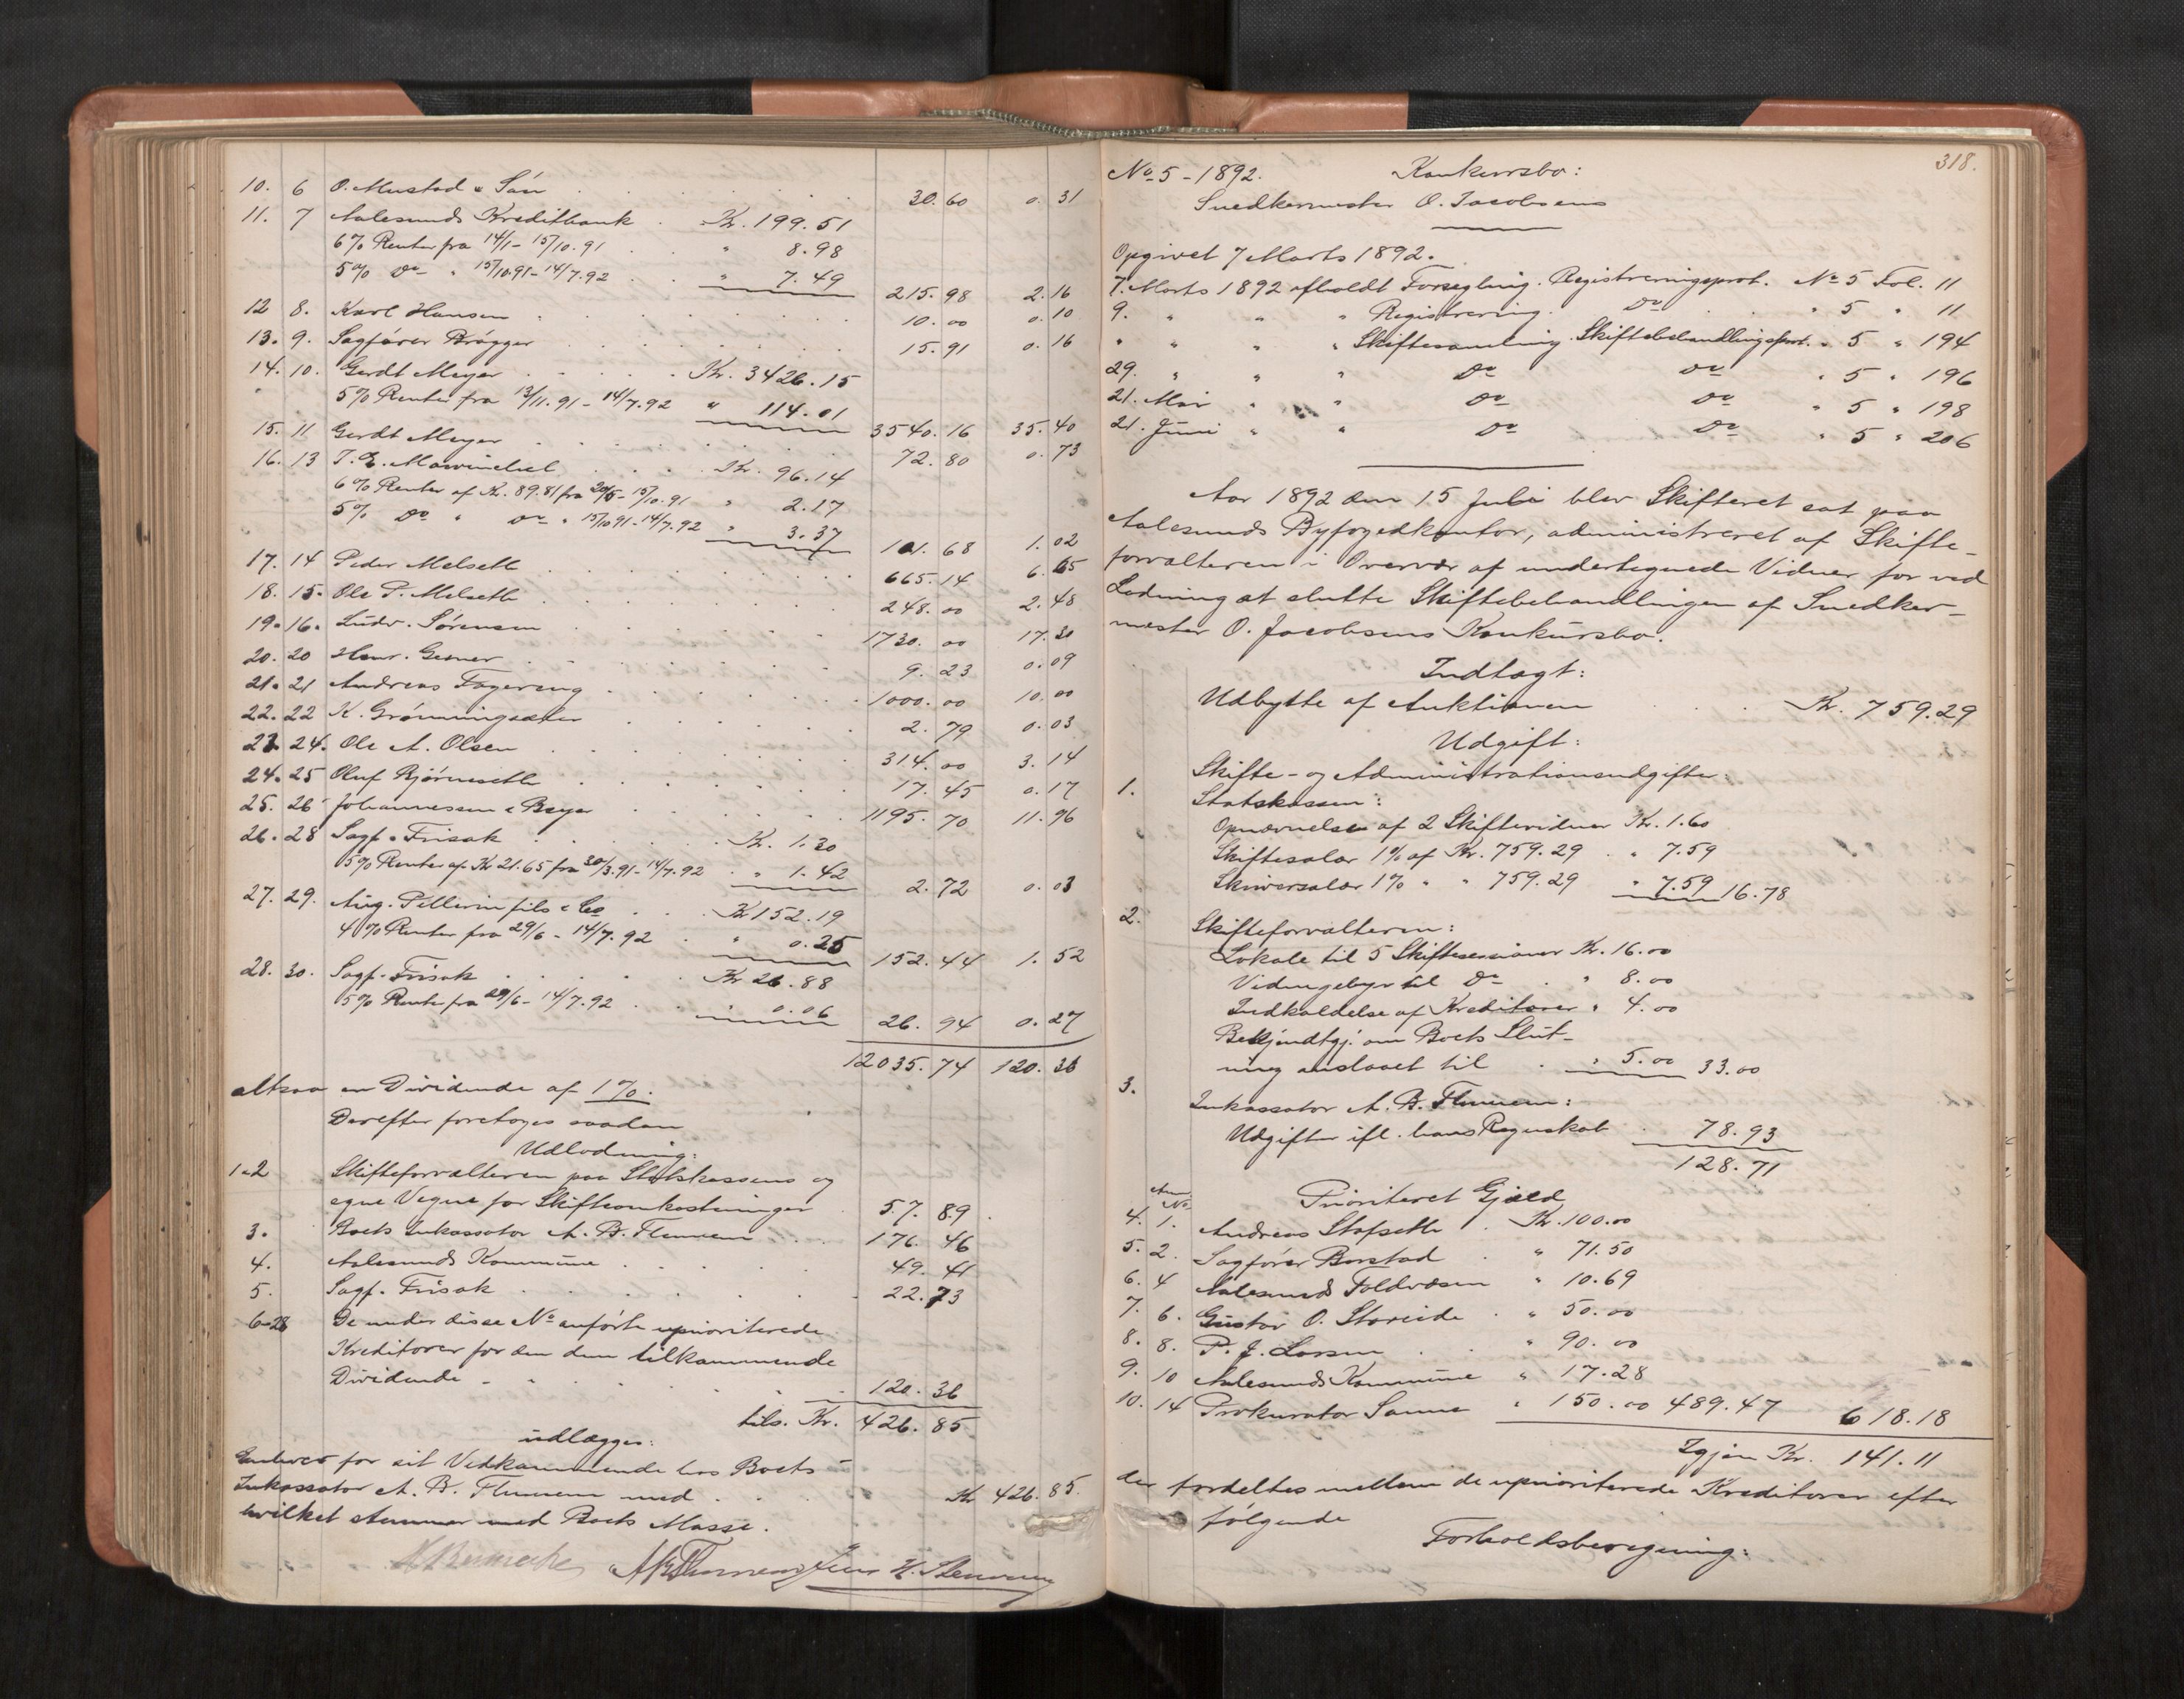 10. 6 O. Mustad & Søn . . . 30.60 0.31
11. 7 Aalesunds Kreditbank . Kr. 199.51
6% Renter fra 14/1 - 15/10.91 . " 8.98
5% Do " 15/10.91 - 14/7.92 . . " 7.49 215.98 2.16
12 8. Karl Hansen . . . 10.00 0.10
13. 9. Sagfører Brøgger . . . 15.91 0.16
14. 10. Gerdt Meyer . . . Kr. 3426.15
" 5% Renter fra 13/11.91 - 14/7.92 " 114.01 3540.16 35.40
15. 11 Gerdt Meyer . . . 72.80 0.73
16. 13 . . . Kr. 96.14
6% Renter af Kr. 89.81 fra 20/5 - 15/10.91 " 2.17
5% Do " Do " 15/10 91 - 14/7.92 " 3.37 101.68 1.02
17. 14 Peder Melseth . . . 665.14 6.65
18. 15. Ole P. Melseth . . . 248.00 2.48
19. 16. Ludv. Sørensen . . . 1730.00 17.30
20. 20 Henr. Gerner . . . 9.23 0.09
21. 21 Andreas Fagereng . . . 1000.00 10.00
22. 22 K. Grønningsæter . . . 2.79 0.03
23 24. Ole A. Olsen . . . 314.00 3.14
24. 25 Oluf Bjørnseth . . . 17.45 0.17
25. 26 Johannessen & . . . 1195.70 11.96
26. 28 Sagf. Frisak . . . Kr. 1.30
5% Renter af Kr 21.65 fra 30/3.91 - 14/7.92 . " 1.42 2.72 0.03
27. 29. Aug. Pellerin fils & Co . . . Kr 152.19
4% Renter fra 29/6 - 14/7.92 . " 0.25 152.44 1.52
28. 30. Sagf. Frisak . . . Kr 26.88
5% Renter fra 29/6 - 14/7.92 . . " 0.06 26.94 0.27
12035.74 120.36
altsaa en Dividende af 1%.
Derefter foretoges saadan
Udlodning:
1 & 2 Skifteforvalteren paa Statskassens og
egne Vegne for Skifteomkostninger . 57.89.
3. Boets Inkassator A. B. . . 176.46
4. Aalesunds Kommune . . . 49.41
5. Sagf. Frisak . . . 22.73
6-28 De under disse No anførte upriorit­erede
Kreditorer for den dem tilkommende
Dividende . . . 120.36
tils. Kr. 426.85
udlægges:
Enhver for sit Vedkommende hos Boets
Inkassator A. B. med . . . Kr 426.85.
hvilket stemmer med Boets Masse.
318.
No 5 - 1892. Konkursbo:
Snedkermester O. Jacobsens
Opgivet 7 Marts 1892.
7. Marts 1892 afholdt Forsegling. Registreringsprot. No 5 Fol. 11
9. " " " Registrering. Do . " 5 " 11
" " " " Skiftesamling. Skiftebehandlingsprot. " 5 " 194
29. " " " Do Do " 5 " 196
21. Mai " " Do Do " 5 " 198
21. Juni " " Do Do " 5 " 206
Aar 1892 den 15 Juli blev Skifteret sat paa
Aalesunds Byfogedkontor, administreret af Skifte-
forvalteren i Overvær af undertegnede Vidner for ved
Lodning at slutte Skiftebehandlingen af Snedker-
mester O. Jacobsens Konkursbo.
Indtægt:
Udbytte af Auktionen . . . Kr. 759.29
Udgift:
Skifte- og Administrationsudgifter:
1. Statskassen:
Opnævnelse af 2 Skiftevidner Kr. 1.60
Skiftesalær 1% af Kr. 759.29 . " 7.59
Skriversalær 1% " " 759.29 " 7.59 16.78
2. Skifteforvalteren:
Lokale til 5 Skiftesessioner Kr. 16.00
Vidnegebyr til Do . " 8.00
Indkaldelse af Kreditorer " 4.00
Bekjendtgj. om Boets Slut-
ning anslaaet til . " 5.00 33.00
3. Inkassator A. B. :
Udgifter ifl. hans Regnskab . 78.93
128.71
Anm. No. Prioriteret Gjæld
4. 1. Andreas Stafseth . Kr. 100.00
5. 2. Sagfører Borstad . " 71.50
6. 4 Aalesunds Toldvæsen " 10.69
7. 6. Gustav O. Storeide . " 50.00
8. 8. P. J. Larsen . . " 90.00
9. 10 Aalesunds Kommune " 17.28
10. 14 Prokurator Sanne " 150.00 489.47 618.18
Igjen Kr. 141.11
der fordeltes mellem de uprioriterede Kreditorer efter
følgende
Forholdsberegning: